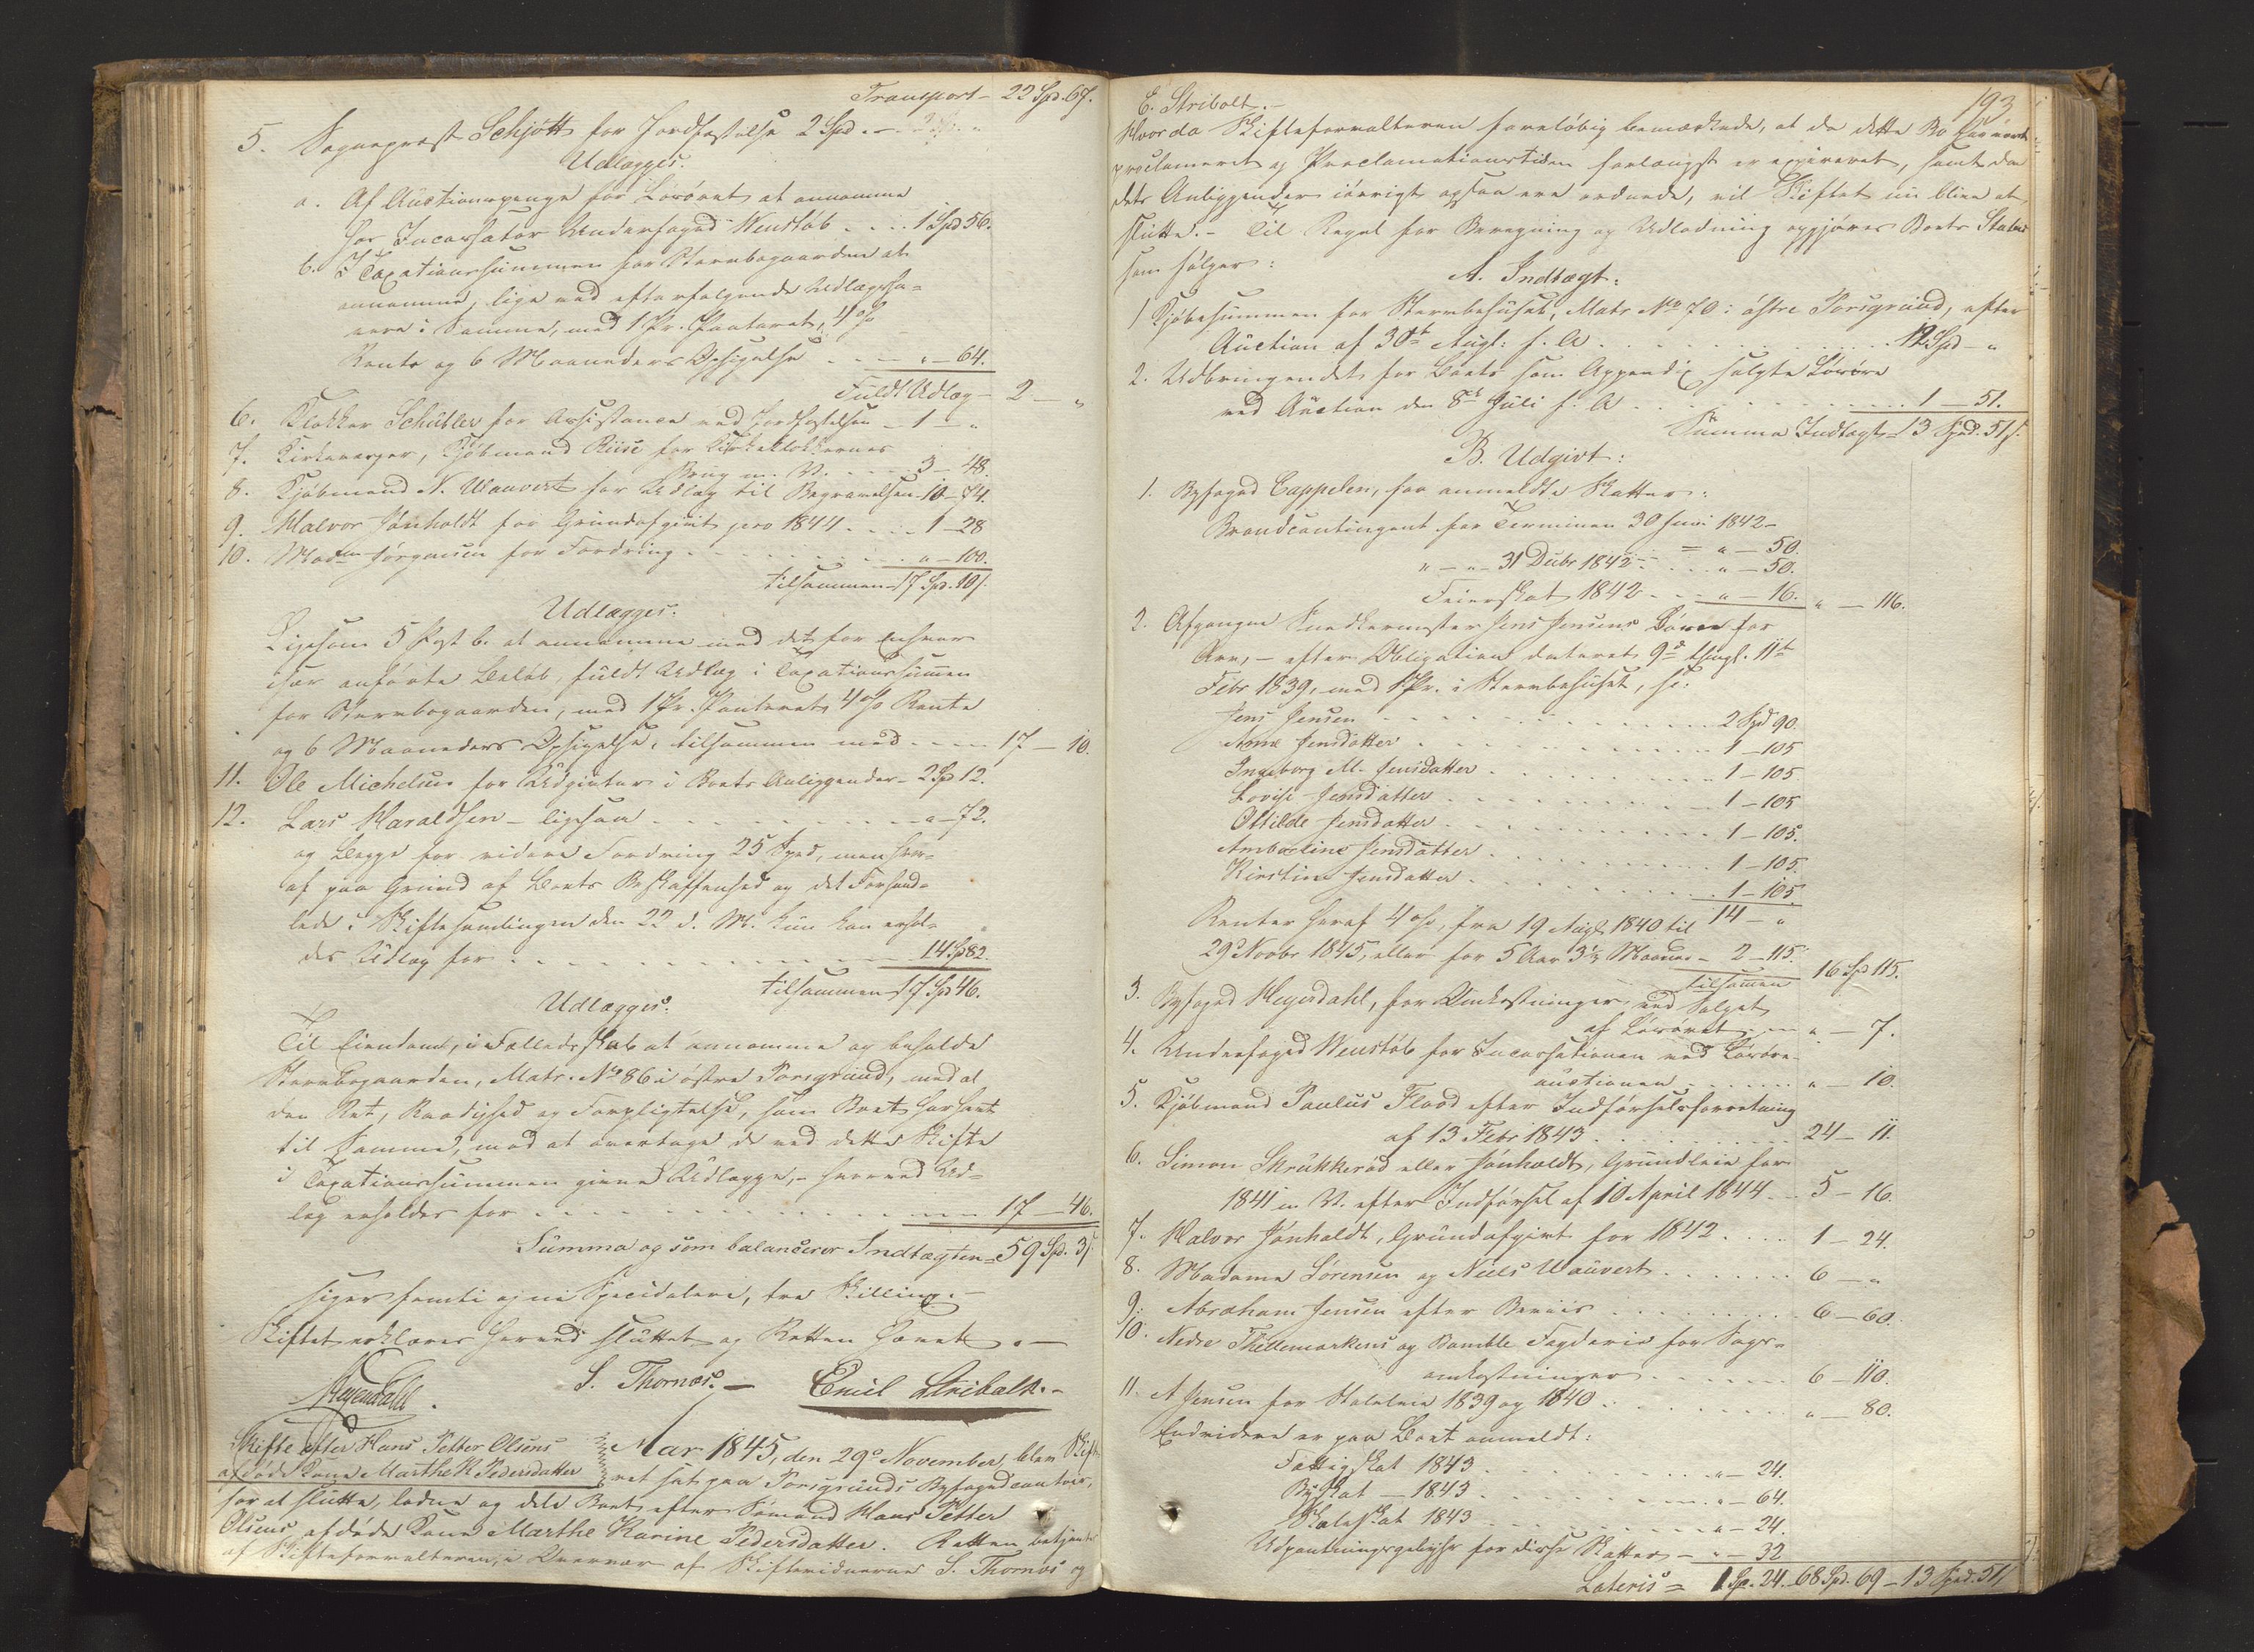 Transport - 22 Spd. 67.
5. Sognepræst Schjött for Jordfæstelse 2 Spd. -
Udlægges:
a. Af Auctionspenge for Lösöret at annamme
hos Incassator Underfoged Wenstöb . . . 1 Spd 56.
b. I Taxationssummen for Stervbogaarden at
annamme, lige med efterfølgende Udlægsha-
vere i Samme, med 1 Pr. Panteret, 4 o/o
Rente og 6 Maaneders Opsigelse - - - " - 64.
Fuldt Udlæg - 2 - "
6. Klokker Schübler for Assistance ved Jordfæstelsen - 1 - "
7. Kirkeværger, Kjöbmand Riise for Kirkeklokkernes
Brug m. V. - - - 3 - 48.
8. Kjöbmand N. Wauvert for Udlæg til Begravelsen - 10 - 74.
9. Halvor Jönholdt for Grundafgivt pro 1844 . . . 1 - 28
10. Madm Jörgensen for Fordring - - - " - 100.
tilsammen - 17 Spd. 10 s.
Udlægges:
Ligesom 5 Post b. at annamme med det for Enhver
især anførte Beløb, fuldt Udlæg i Taxationssummen
for Stervbogaarden, med 1 Pr. Panteret, 4 o/o Rente
og 6 Maaneders Opsigelse, tilsammen med - - - 17 - 10.
11. Ole Michelsen for Udgivter i Boets Anliggender - 2 Sp 12.
12. Lars Haraldsen - ligesaa - - - " - 72.
og Begge for videre Fordring 25 Spd, men hver-
af paa Grund af Boets Beskaffenhed og det Forhand-
lede i Skiftesamlingen den 22 d. M. kun kan erhol-
des Udlæg for - - - 14 Sp 82.
tilsammen 17 Spd 46.
Udlægges:
Til Eiendom, i Fælledsskab at annamme og beholde
Stervbogaarden, Matr. No 86 i östre Porsgrund, med al
den Ret, Raadighed og Forpligtelse, som Boet har havt
til Samme, mod at overtage de ved dette Skifte
i Taxationssummen givne Udlægge, - hvorved Ud-
læg erholdes for - - - 17 - 46.
Summa og som balancerer Indtægten = 59 Spd. 3 s.
siger femti og ni Speciedalere, tre Skilling. -
Skiftet erklæres herved sluttet og Retten hævet. -
Heyerdahl. S. Thornæs. - Emil Stribolt. -
Skifte efter Hans Petter Olsens
afdöde Kone Marthe K. Pedersdatter
Aar 1845, den 29de November, blev Skifte-
ret sat paa Porsgrunds Byfogedcontoir,
for at slutte, lodne og dele Boet efter Sömand Hans Petter
Olsens afdöde Kone Marthe Karine Pedersdatter. Retten betjentes
af Skifteforvalteren, i Overvær af Skiftevidnerne S. Thornæs og
193
E. Stribolt. -
Hvorda Skifteforvalteren foreløbig bemærkede, at da dette Bo har været
proclameret og Proclamationstiden forlængst er expireret, samt da
dets Anliggender iøvrigt ogsaa ere ordnede, vil Skiftet nu blive at
slutte. - Til Regel for Beregning og Udlodning opgjøres Boets Status
som følger:
A. Indtægt:
1 Kjöbesummen for Stervbohuset, Matr No 70 i östre Porsgrund, efter
Auction af 30te Augt. f. A . . . 12 Spd - "
2. Udbringendet for Boets som Appendix solgte Lösöre
ved Auction den 8de Juli f. A . . . 1 - 51.
Summa Indtægt = 13 Spd. 51 s.
B. Udgivt:
1. Byfoged Cappelen, for anmeldte Skatter:
Brandcontingent for Terminen 30 Juni 1842 -
= " - 50.
" - " - 31 Decbr 1842 - . . . " - 50.
Feierskat 1842 - - - " - 16. " - 116.
2. Afgangne Snedkermester Jens Jensens Börn for
Arv, - efter Obligation dateret 9de thingl. 11te
Febr 1839, med 1 Pr. i Stervbohuset, sc:
Jens Jensen - - - 2 Spd 90.
Anne Jensdatter . . . 1 - 105
Ingeborg M. Jensdatter . . . 1 - 105.
Lovise Jensdatter . . . 1 - 105
Ottilde Jensdatter . . . 1 - 105.
Ambortine Jensdatter . . . 1 - 105.
Kirstine Jensdatter . . . 1 - 105.
14 - "
Renter heraf 4 o/o, fra 19 Augt 1840 til
29de Novbr 1845, eller for 5 Aar 3 1/3 Maaned - 2 - 115.
tilsammen 16 Spd 115.
3. Byfoged Heyerdahl, for Omkostninger ved Salget
af Lösöret - - " - 7.
4. Underfoged Wenstöb for Incassationen ved Lösöre-
auctionen - - - " - 10.
5. Kjöbmand Paulus Flood efter Indførselsforretning
af 13 Febr 1843 . . . 24 - 11.
6. Simon Skrukkeröd eller Jönholdt, Grundleie for
1841 m. V. efter Indførsel af 10 April 1844 - - 5 - 16.
7. Halvor Jönholdt, Grundafgivt for 1842 . . . 1 - 24.
8. Madame Sörensen og Niels Wauvert . . . 6 - "
9. Abraham Jensen efter Beviis . . . 6 - 60.
10. Nedre Thellemarkens og Bamble Fogderie for Sags-
omkostninger . . . 6 - 110.
11. A Jensen for Stoleleie 1839 og 1840 . . . " - 80.
Endvidere er paa Boet anmeldt:
Fattigskat 1843 . . . " - 24.
Byskat - 1843 . . . " - 64.
Skoleskat 1843 . . . " - 24.
Udpantningsgebyhr for disse Skatter - " - 32
Lateris = 1 Sp. 24. - 68 Spd. 69 - 13 Spd. 51 s.